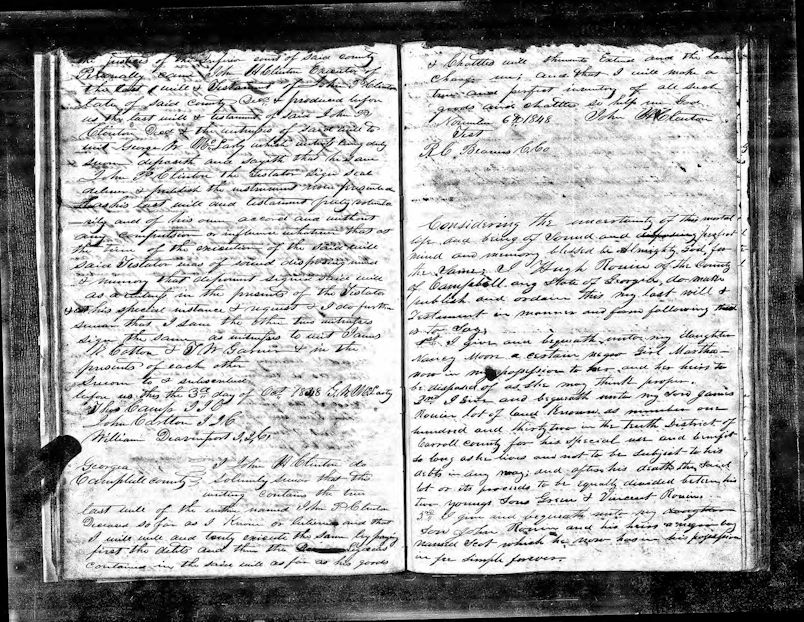 the Justices of the Inferior court of said county
Personally came John W Clinton Executor of
the last will & Testament of John P. Clinton
late of said county Decd & produced before
us the last will & testament of said John P.
Clinton Decd & the witnesses of said will to
wit George W. McLarty which witness being duly
sworn deposeth and sayeth that he saw
John P. Clinton the Testator sign seal
deliver & publish the instrument now presented
as his last will and testament freely volunta
rily and of his own accord and without
any compulsion or influence whatever that at
the time of the execution of the said will
said Testator was of sound disposing mind
& memory that deponent signed said will
as a witness in the presents of the Testator
at his special instance & request & I do further
swear that I saw the other two witnesses
sign the same as witnesses to wit James
W. Cotton & T. W. Garvin & in the
presents of each other
Sworn to & subscribed
before us this the 3rd day of Oct 1848 G. W. McLarty
Thos Camp J I C
John Carlton J I C
William Deavenport J. I. C.
Georgia
Campbell county
I John W. Clinton do
solemnly swear that the
writing contains the true
last will of the within named John P. Clinton
Deceased so far as I know or believe and that
I will well and truly execute the same by paying
first the debts and then the legacies
contained in the said will as far as his goods
& Chattles will thereunto Extend and the law
charge me, and that I will make a
true and perfect inventory of all such
goods and chattles so help me God
November 6th 1848 John W Clinton
Test
R. C. Beavers C.C.O
Considering the uncertainty of this mortal
life and being of sound and perfect
mind and memory blessed be Almighty God for
the same. I Hugh Rowin of the County
of Campbell and State of Georgia, do make
publish and ordain this my last will &
Testament in manner and form following that
is to say,
1st I give and bequeath unto my daughter
Nancy Moon a certain negro Girl Martha
now in my possession to her, and her heirs to
be disposed of as she may think proper.
2nd I Give and bequeath unto my Son James
Rowin lot of land known as number one
hundred and thirty two in the tenth District of
Carroll county for his special use and benefit
so long as he lives and not to be subject to his
debts in any way; and after his death the said
lot or its proceeds to be equally divided between his
two youngest Sons Green & Vincent Rowin.
3rd I give and bequeath unto my daughter
Son John Rowin and his heirs a negro boy
named Scot which he now has in his possession
in fee simple forever.